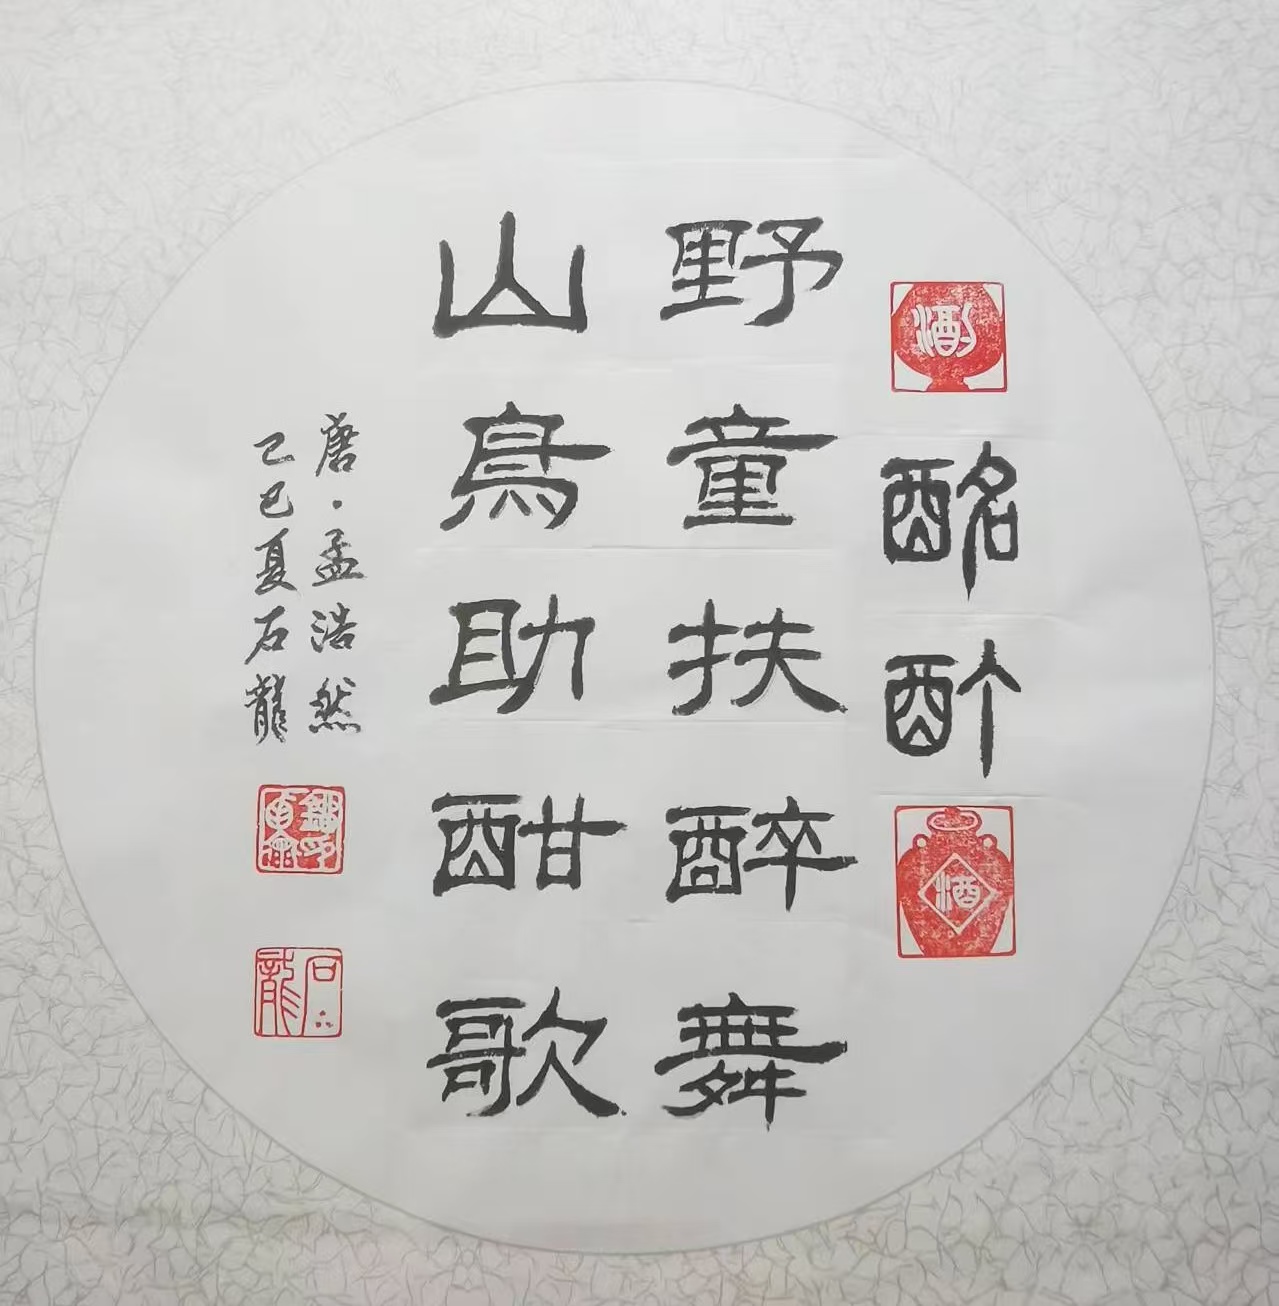 酩酊
酒
野童扶醉舞
山鳥助酣歌
唐·孟浩然
乙巳夏石龍
石龍